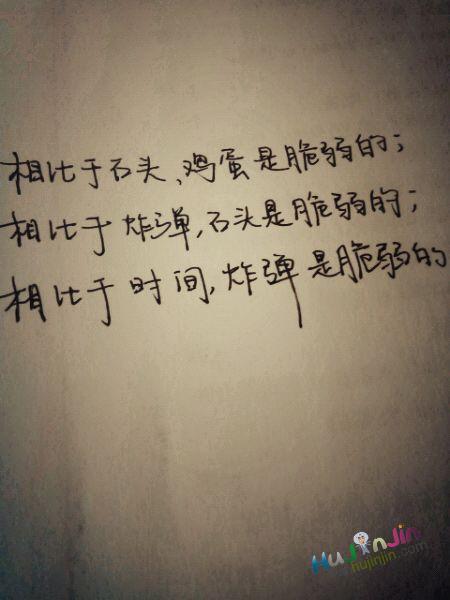 相比于石头、鸡蛋是脆弱的；
相比于炸弹,石头是脆弱的；
相比于时间,炸弹是脆弱的
HuJinJin
hujinjin.com